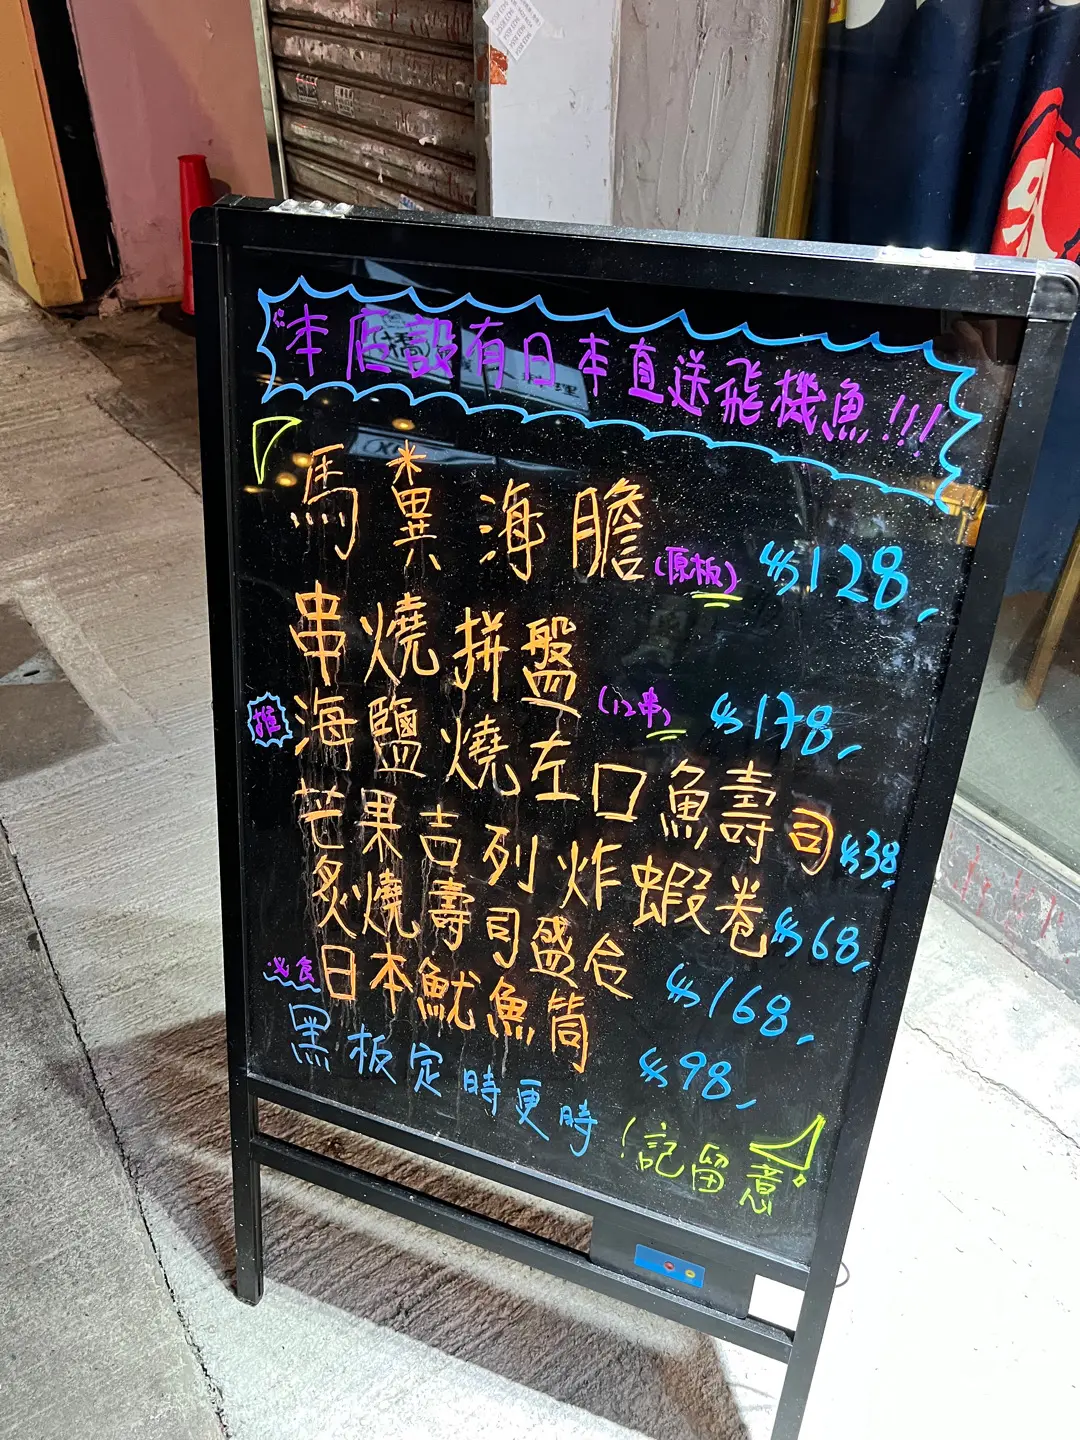 本店設有日本直送飛機魚!!!
馬糞海膽(原板) $128
串燒拼盤(12串) $178
推 海鹽燒左口魚壽司 $38
芒果吉列炸蝦卷 $68
炙燒壽司盛合 $168
必食 日本魷魚筒 $98
黑板定時更時
(記留意